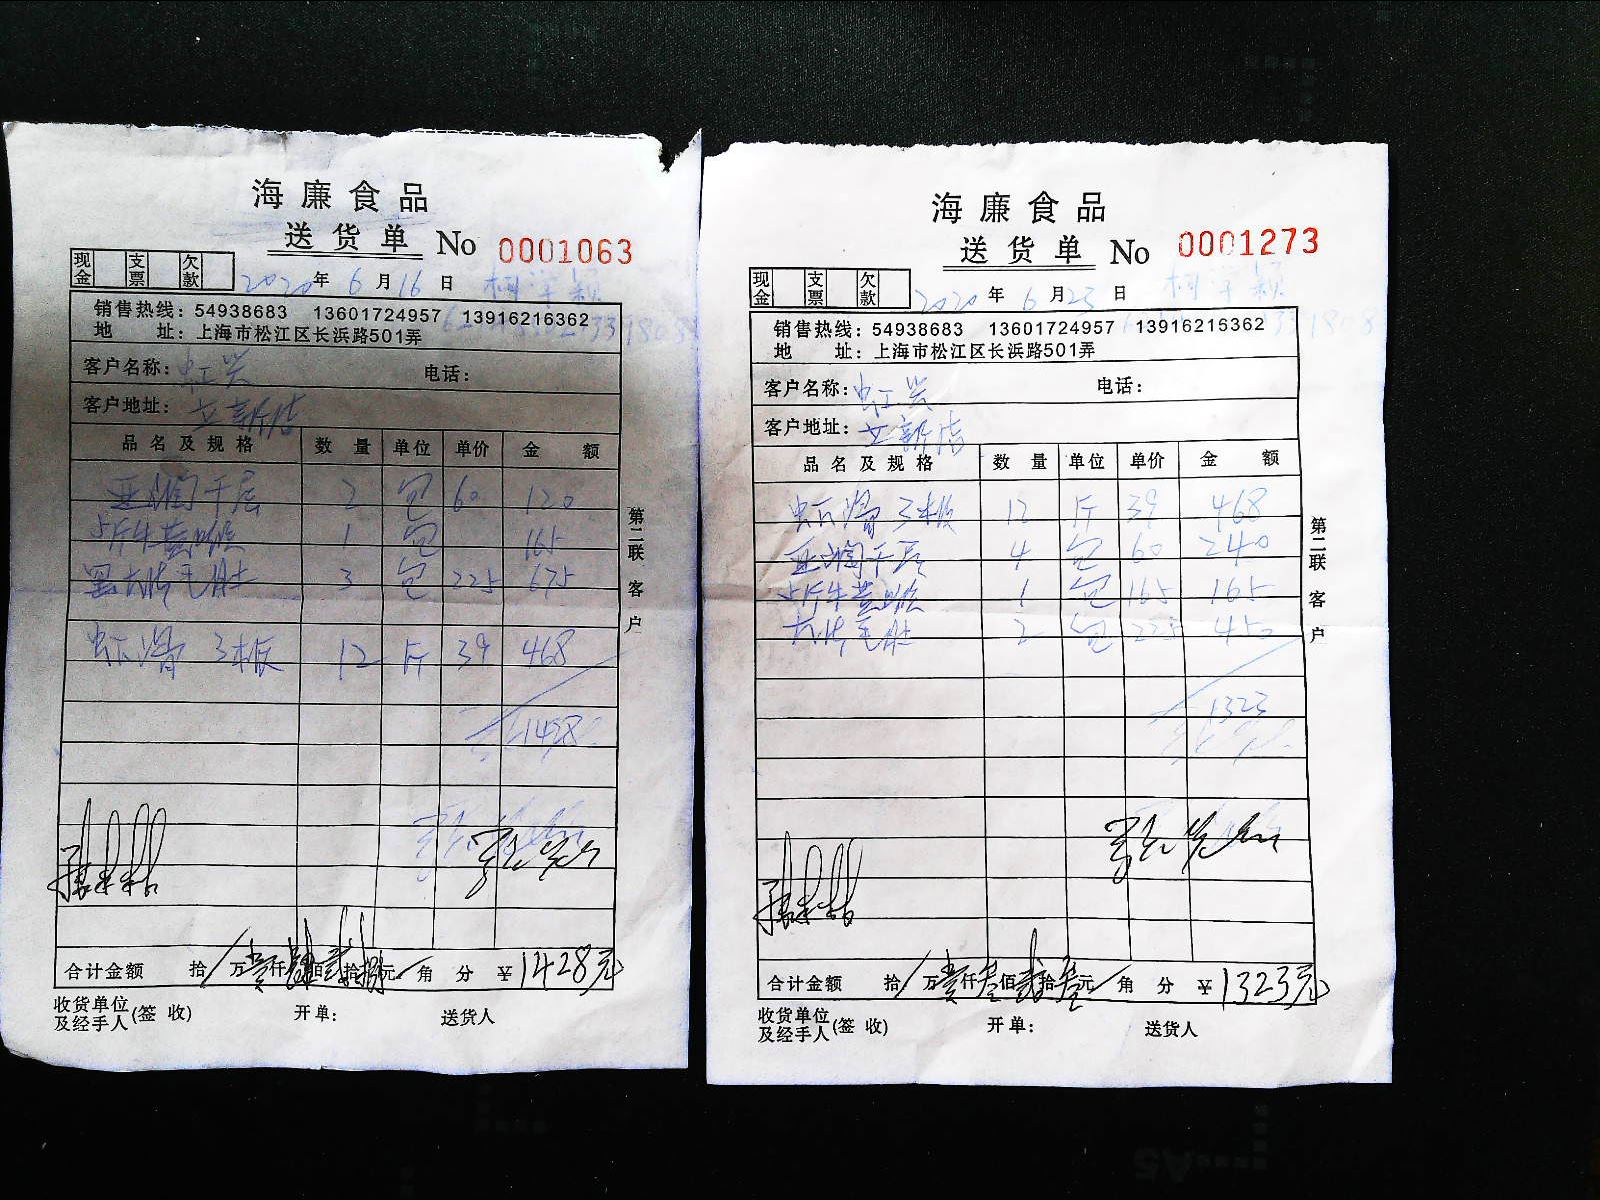 海廉食品
送货单 No 0001063
现金 支票 欠款
2020年6月16日
销售热线：54938683 13601724957 13916216362
地 址：上海市松江区长浜路501弄
客户名称：虹兴 电话：
客户地址：立新店
品名及规格 数量 单位 单价 金额
千层 2 包 60 120
5斤牛黄喉 1 包 165
毛肚 3 包 225 675
虾滑 3板 12斤 39 468
1428
合计金额 拾/万壹仟肆佰贰拾捌元/角 分 ￥1428元
收货单位及经手人(签收) 开单： 送货人
第二联 客户
海廉食品
送货单 No 0001273
现金 支票 欠款
2020年6月23日
销售热线：54938683 13601724957 13916216362
地 址：上海市松江区长浜路501弄
客户名称：虹兴 电话：
客户地址：立新店
品名及规格 数量 单位 单价 金额
虾滑 3板 12 斤 39 468
千层 4 包 60 240
5斤牛黄喉 1 包 165 165
毛肚 2 包 225 450
1323
合计金额 拾/万壹仟叁佰贰拾叁元/角 分 ￥1323元
收货单位及经手人(签收) 开单： 送货人
第二联 客户